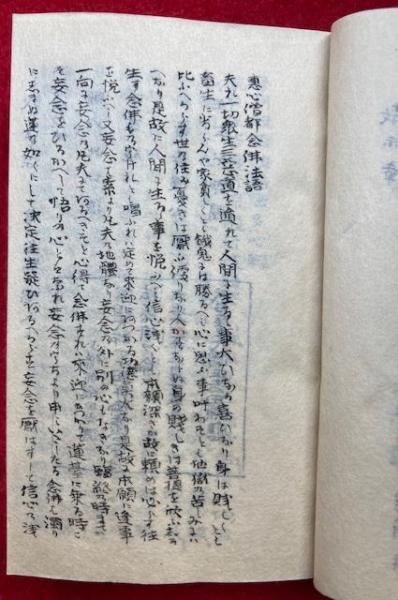 惠心僧都念佛法語
夫れ一切衆生三悪道を遁れて人間に生るゝ事大いなる喜いなり身は賎しくとも
畜生に劣らんや家貧しくとも餓鬼には勝るへし心に思ふ事叶わすとも地獄の苦しみに
比ふへからす世の住み憂きは厭ふ便りなり人かすならぬ身の賎しきは菩提を欣ふしる
へなり是故に人間に生るゝ事を悦ふへし信心浅くとも本願深きか故に頼めは必らす往
生す念佛ものうけれとも唱ふれハ定めて来迎にあつかる功徳莫大なり是故本願に逢事
を悦ふへし又妄念は素より凡夫の地體なり妄念の外に別の心もなきなり臨終の時まて
一向に妄念の凡夫にてあるへきそと心得て念佛すれは来迎にあつかりて蓮臺に乗る時こ
そ妄念をひるかへして悟りの心とハなれ妄念のうちより申しいたしたる念佛は濁り
に志まぬ蓮の如くにして決定往生疑ひあるへからす妄念を厭はすして信心の浅